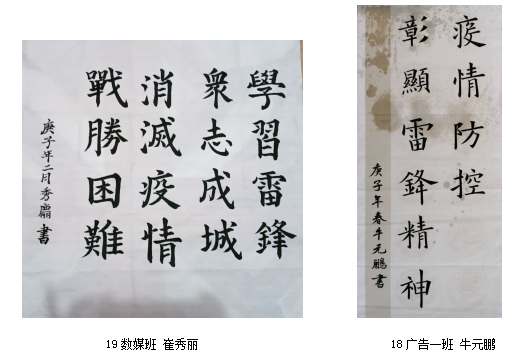 學習雷鋒
衆志成城
消滅疫情
戰勝困難
庚子年二月秀麗書
19数媒班 崔秀丽
疫情防控
彰顯雷鋒精神
庚子年春牛元鵬書
18广告一班 牛元鹏